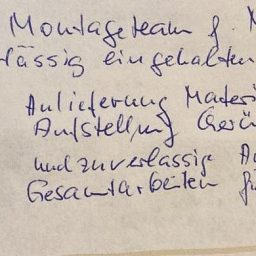 Montageteam f.
lässig eingehalten
Anlieferung Materi
Aufstellung Gerü
und zuverlässige
Gesamtarbeiten fü